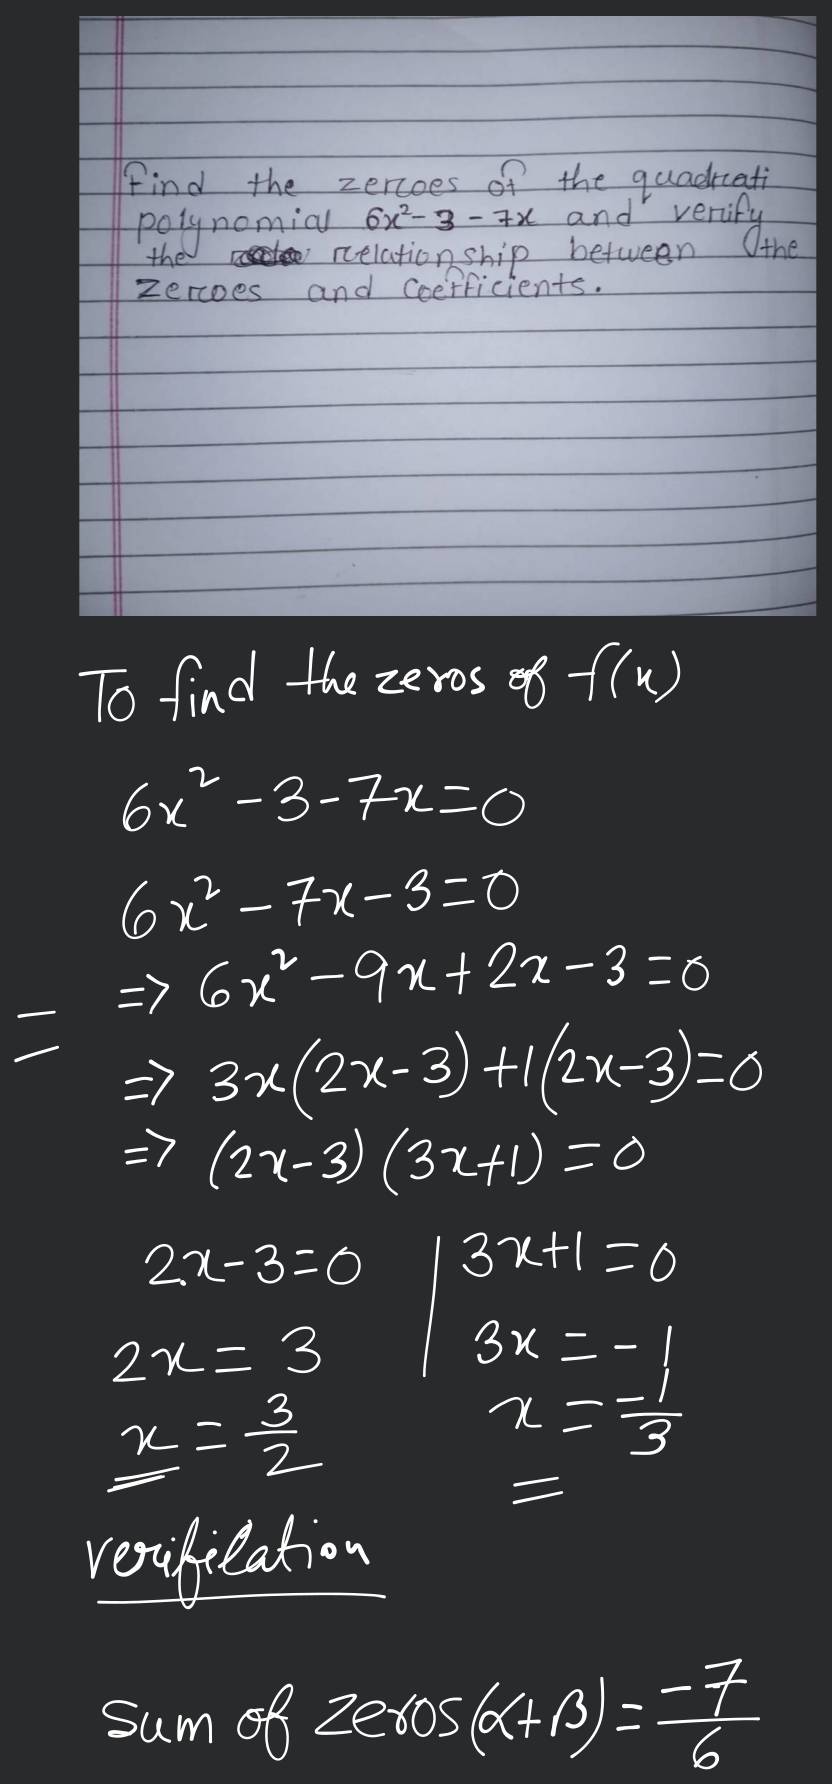 Find the zeroes of the quadrati
polynomial 6x²-3-7x and verify
the relationship between the
zeroes and coefficients.
To find the zeros of f(x)
6x²-3-7x=0
6x²-7x-3=0
=> 6x²-9x+2x-3=0
=
=> 3x(2x-3)+1(2x-3)=0
=> (2x-3)(3x+1)=0
2x-3=0 | 3x+1=0
2x=3 3x=-1
x=3/2 x=-1/3
=
verifilation
Sum of zeros(α+β)=-7/6